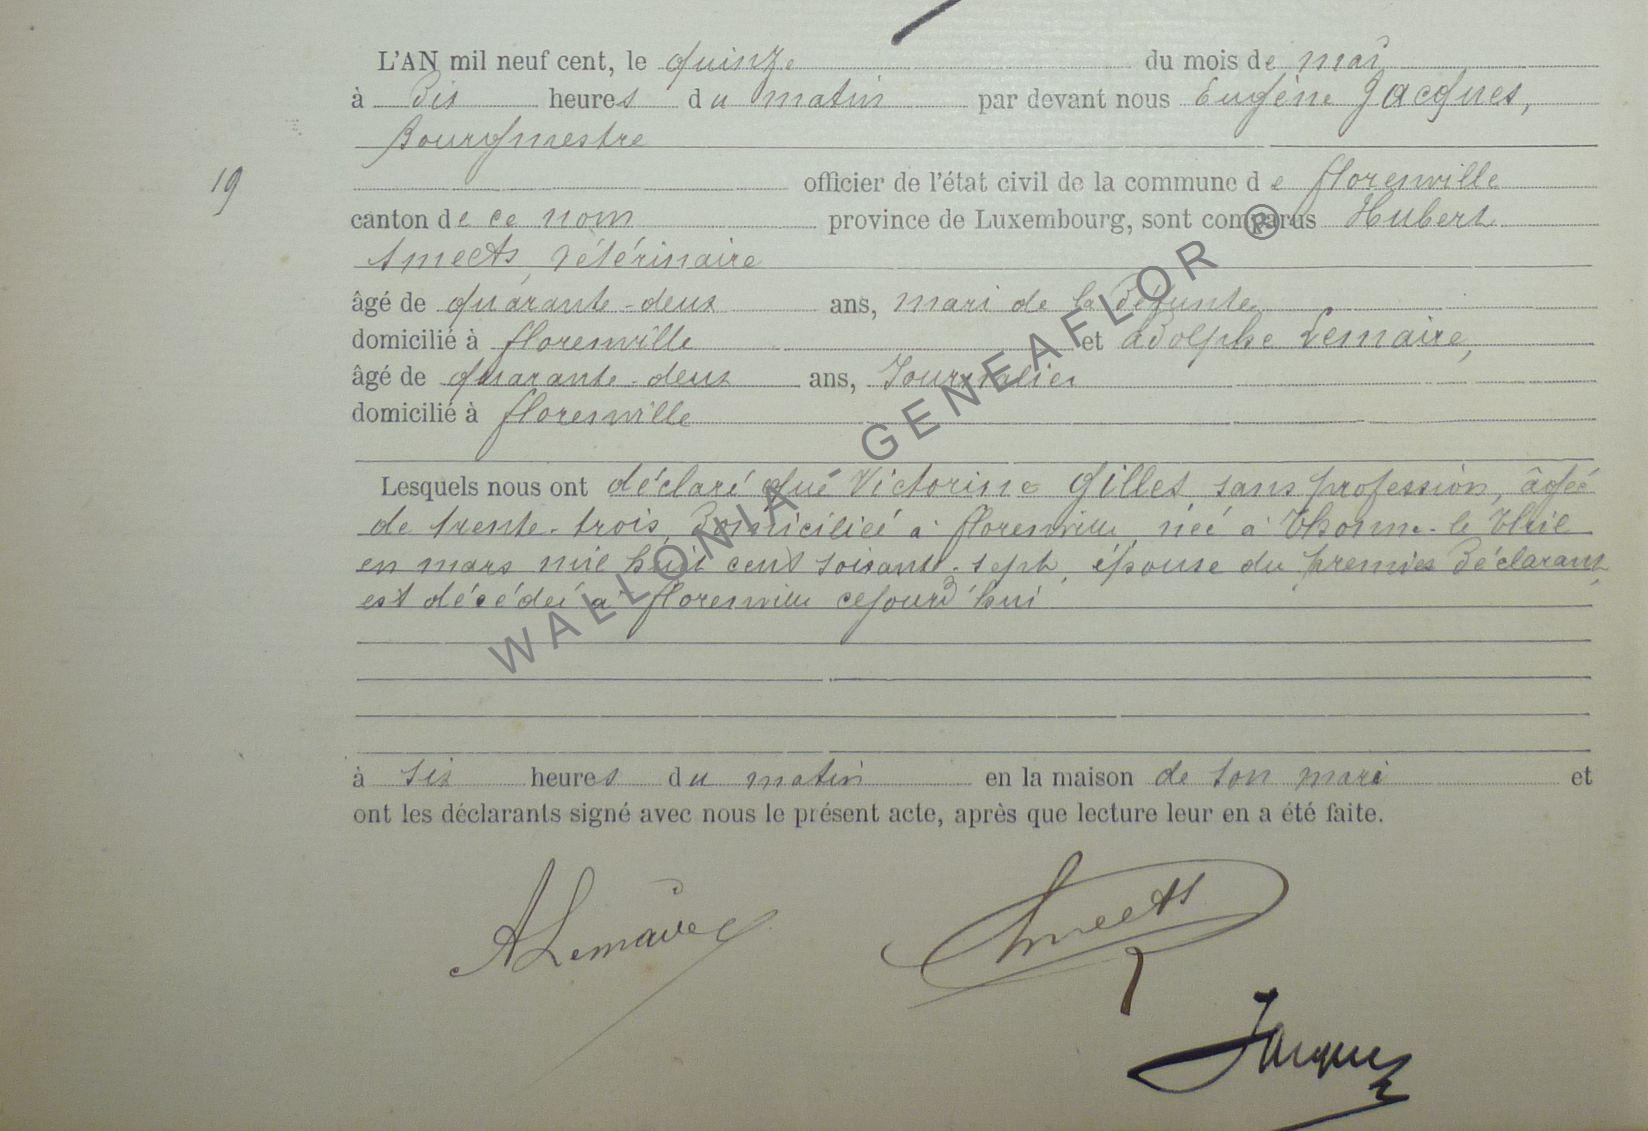 L'AN mil neuf cent, le quinze du mois de mai
à dix heures du matin par devant nous Eugène Jacques,
Bourgmestre
19
officier de l'état civil de la commune de florenville
canton de ce nom province de Luxembourg, sont comparus Hubert
Smeets, vétérinaire
âgé de quarante-deux ans, mari de la défunte
domicilié à florenville et adolphe Lemaire,
âgé de quarante-deux ans, Journalier
domicilié à florenville
Lesquels nous ont déclaré que Victorine Gilles sans profession, âgée
de trente-trois, domiciliée à florenville, née à Thonne-le Thil
en mars mil huit cent soixante-sept, épouse du premier déclarant,
est décédée à florenville cejourd'hui
à six heures du matin en la maison de son mari et
ont les déclarants signé avec nous le présent acte, après que lecture leur en a été faite.
ALemaire Smeets
Jacques
WALLONIA GENEAFLOR ®